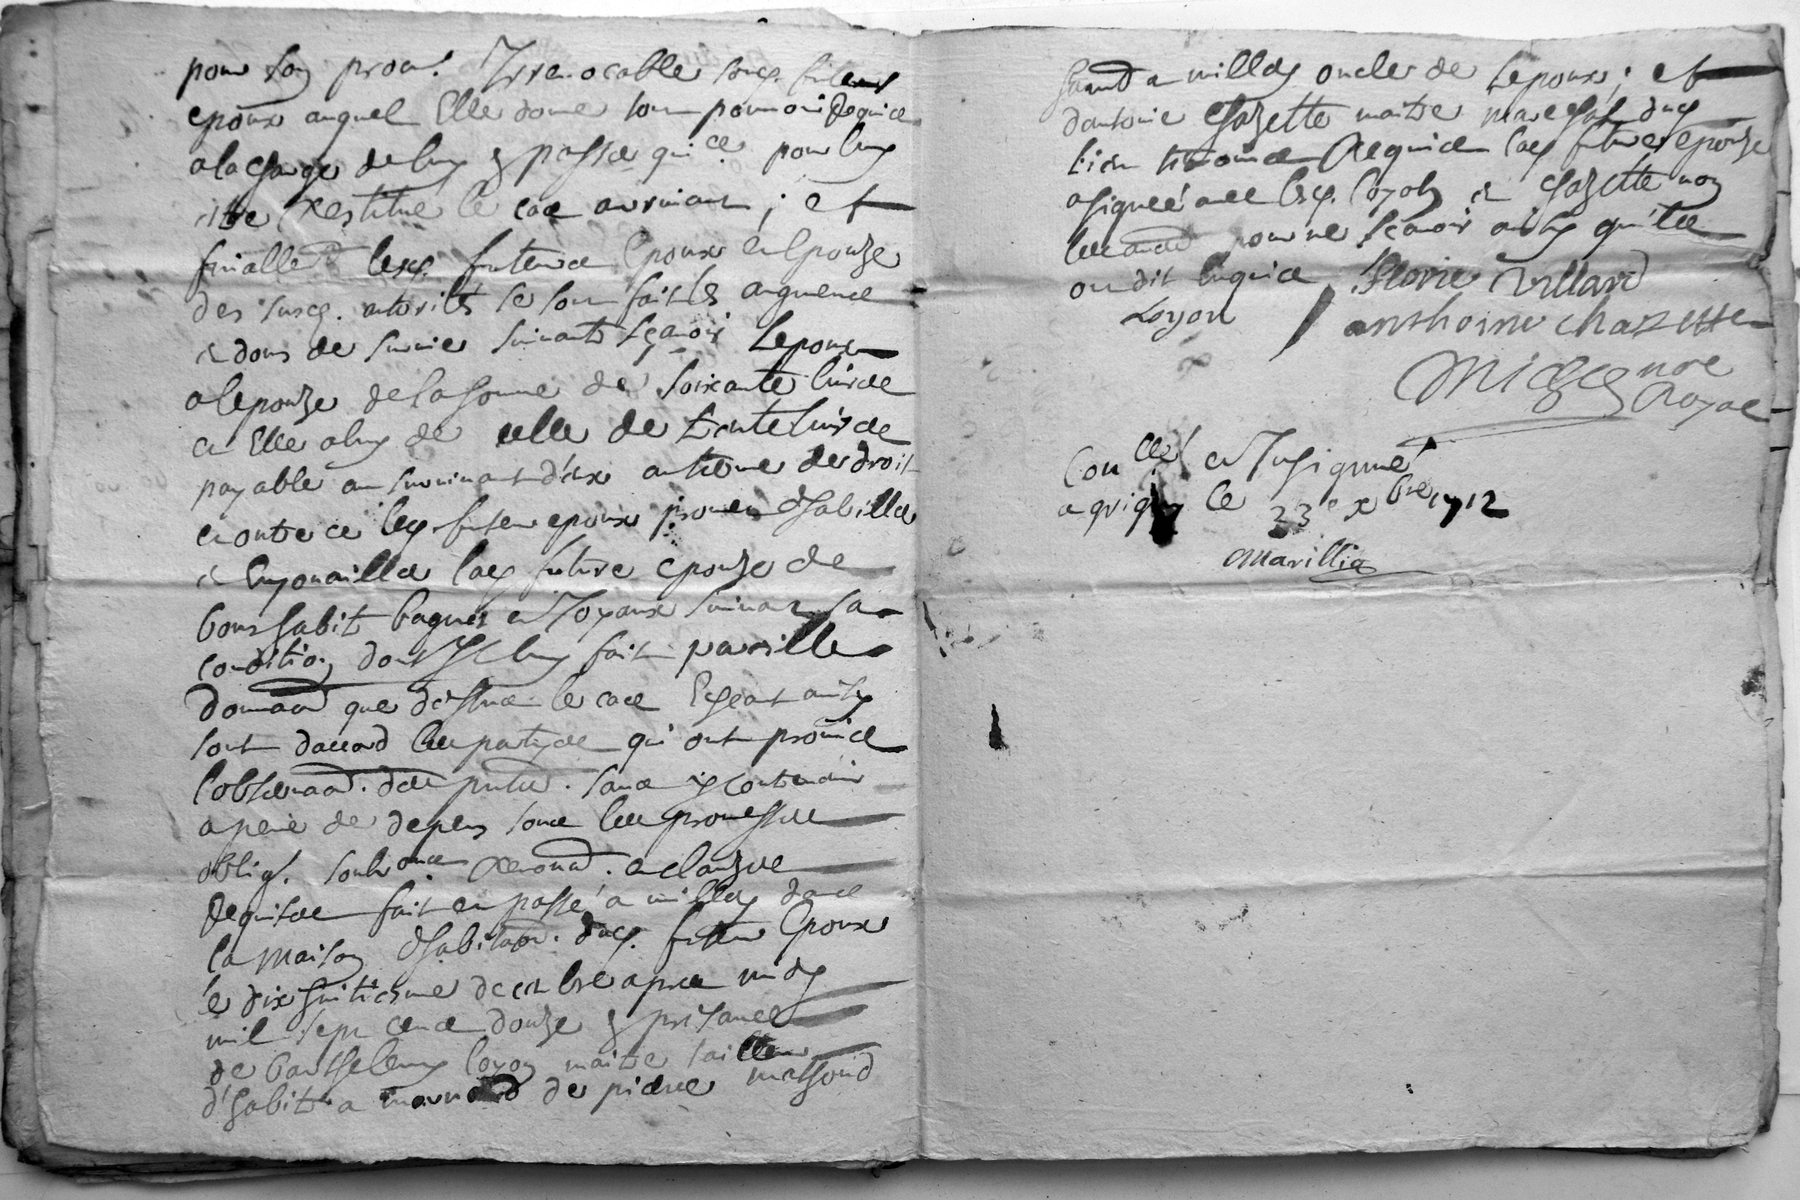 pour son procur. Irrevocable led. futeur
epoux auquel Elle donne tout pouvoir Requice
a la charge de luy en passer quice pour luy
estre Restitué le cas avenant ; et
finallemt lesd. futeurs Epoux et Epouze
des susd. autorités se sont faits augmence
et dons de survie suivants sçavoir Lepoux
a lepouze de la somme de soixante livres
et Elle a luy de celle de trente livres
payable au survivant d'eux autheme de droit
et outre ce led. futeur epoux promet dhabiller
et Enjouailler lad. future epouze de
bons habit bagues et Joyaux suivant sa
condition dont Il luy fait pareille
donnaon que dessus le cas Escheant ainsy
sont d'accord lesd. partyes qui ont promis
l'observaon. des pntes. sans y contrevenir
a peine de depens sous les promesses
oblig. soubsons Renonc. et clauzes
Requises fait et passé a millery dans
la maison dhabitaon. dud. futeur Epoux
le dix huitiesme decembre apres midy
mil sept cens douze en presance
de barthelemy loyon maitre tailleur
d'habit a mornand de pierre mathoud
grand a millery oncle de Lepoux ; et
d'antoine chazette maitre marechal dud.
lieu temoins Requice lad. future epouze
a signée avec lesd. loyon et chazette non
les autres pour ne sçavoir ainsy quils
ont dit Enquis florie Villard
Loyon anthoine chazette
Migge nre
Royal
Conllé et Insigné
a grigny le 23e xbre 1712
Marillia